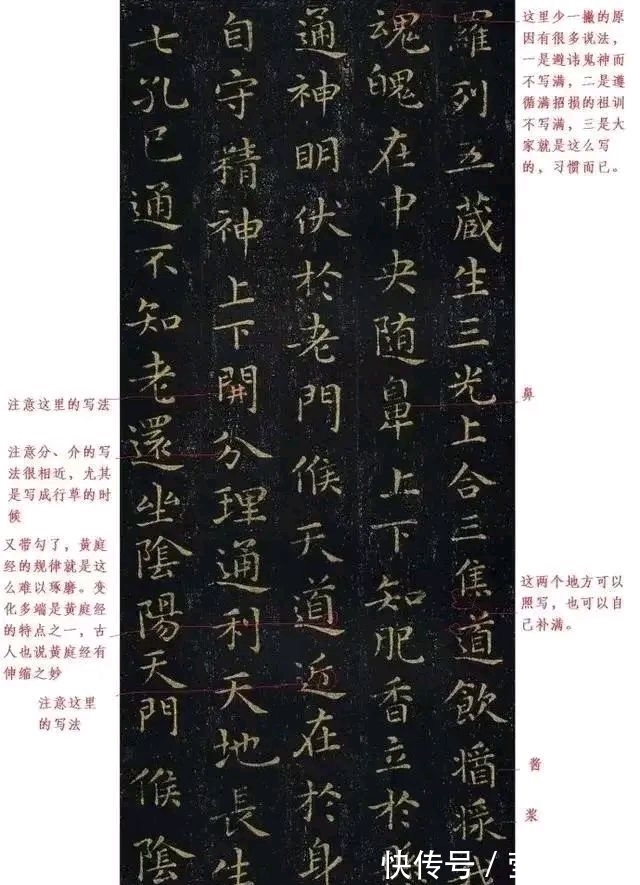 羅列五蔵生三光上合三焦道飲醬漿我
魂魄在中央随鼻上下知肥香立於
通神明伏於老門候天道近在於身
自守精神上下開分理通利天地長生
七孔已通不知老還坐陰陽天門候陰
这里少一撇的原
因有很多说法，
一是避讳鬼神而
不写满，二是遵
循满招损的祖训
不写满，三是大
家就是这么写
的，习惯而已。
鼻
这两个地方可以
照写，也可以自
己补满。
酱
浆
注意这里的写法
注意分、介的写
法很相近，尤其
是写成行草的时
候
又带勾了，黄庭
经的规律就是这
么难以琢磨。变
化多端是黄庭经
的特点之一，古
人也说黄庭经有
伸缩之妙
注意这里
的写法
快传号／